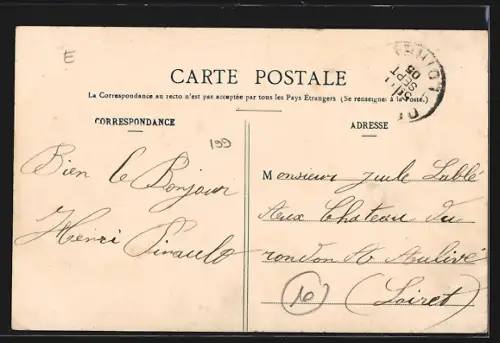 E
CARTE POSTALE
La Correspondance au recto n'est pas acceptée par tous les Pays Étrangers (Se renseigner à la Poste.)
CORRESPONDANCE
ADRESSE
199
Bien le Bonjour
Henri Pinault
Monsieur Jule Lablé
Aux Chateau du
rondon St Aulivé
(Loiret)
16
SEPT
05